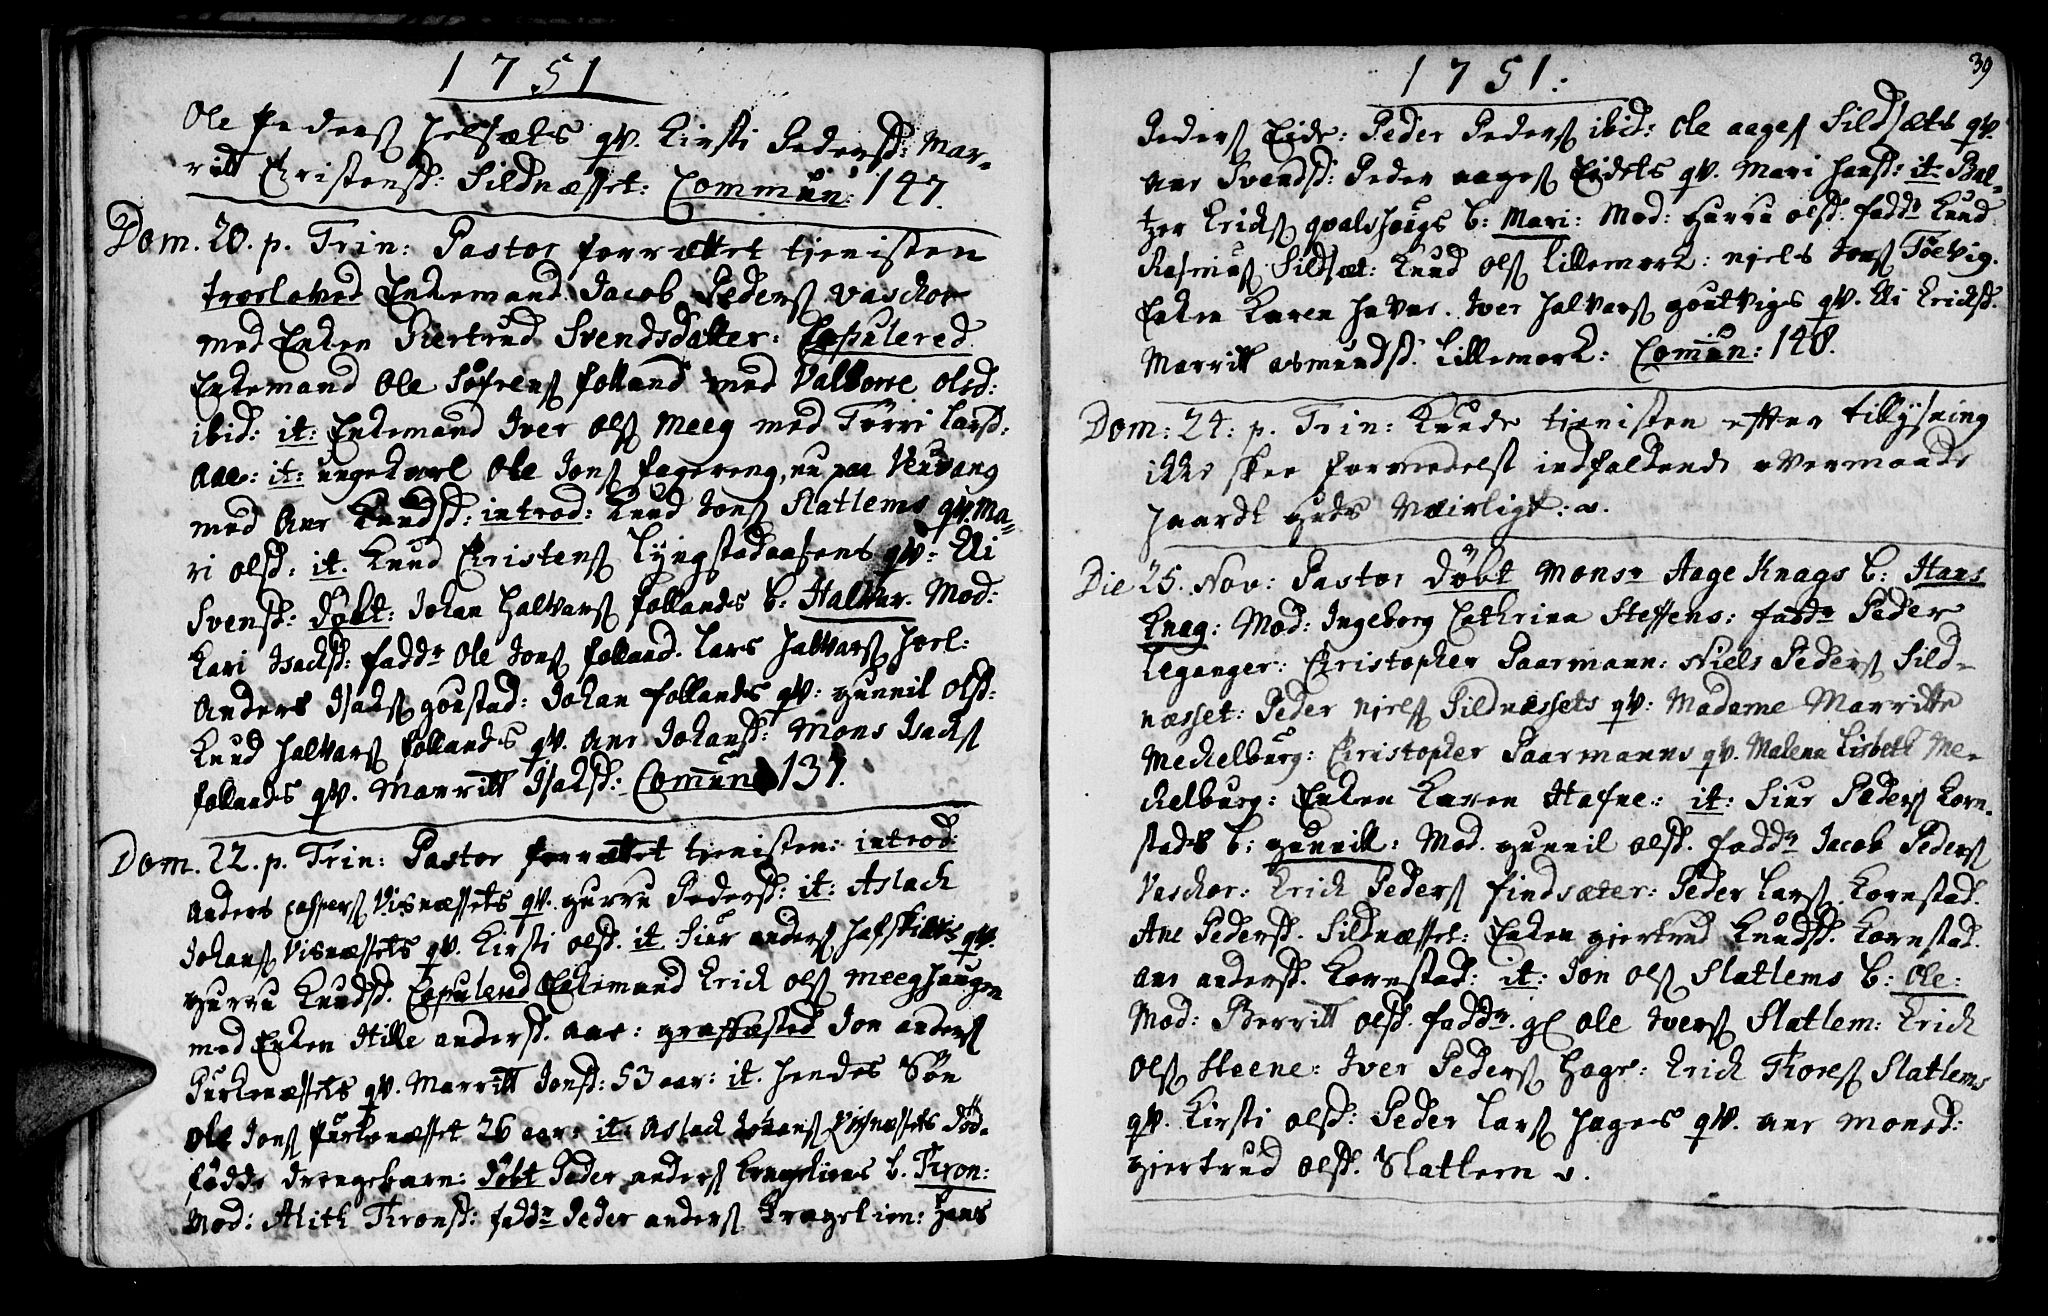 1751
Ole Peders Helsæts qv. Kirsti Pedersd: Mar-
ritt Christensd: Sildnæsset: Commun: 147.
Dom. 20. p. Trin: Pastor forrættet tienisten
troelowed Enkemand Jacob Peders Vaschor
med Enken Giertrud Svendsdatter: Copulered
Enkemand Ole Sofrens folland med Valborre Olsd:
ibid: it: Enkemand Iver Ols Meeg med Torri Larsd:
Aae: it: ungekarl Ole Jons fagereng, nu paa Veuvang
med Ane Knudsd: introd: Knud Jons Slatlems qv. Ma-
ri Olsd: it. Knud Christens Lyngstadaasens qv: Eli
Svensd: Döbt: Johan Halvars follandes b: Halvar. Mod:
Kari Isachsd: fadd^r Ole Jons folland. Lars Halvars Hoel:
Anders Isachs goustad: Johan follandes qv: gunnil Olsd:
Knud Halvars follands qv. Ane Johansd: Mons Isachs
follands qv. Marritt Isachsd: Comun 137.
Dom. 22. p. Trin: Pastor forrættet tienisten: introd
Anders Caspers Visnæssets qv. gurru Pedersd: it: Aslach
Johans Visnæssets qv. Kirsti Olsd. it. Siur Anders
gurru Knudsd. Copulerd Enkemand Erich Ols Meeghaugen
med Enken Hille Andersd. Aae: graffæsted Jon Anders
Purkenæssets qv. Marritt Jonsd: 53 aar: it. hendes Sön
Ole Jons Purkenæsset 26 aar: it: Aslach Johans Visnæssets död-
födde drengebarn: Döbt Peder Anders b. Thron:
Mod: Alith Thronsd: fadd^r Peder Anders Hans
1751:
39
Peders Eide: Peder Peders ibid: Ole Aages Sildsæts qv.
Ane Svendsd: Peder Aages Eidets qv. Mari Hansd: it: Bal-
tzer Erichs qvalshaugs b: Mari: Mod: gurru Olsd. fadd^r Knud
Rasmus Sildsæt: Knud Ols Lillemork: Niels Jons Toevig.
Enken Karen Havne. Iver Halvars goutvigs qv. Eli Erichsd.
Marritt Asmundsd. Lillemork: Comun: 148.
Dom: 24: p. Trin: Kunde tienisten efter tillysning
ikke skee formedelst indfaldende overmaade
haardt guds Veirligt: o.
Die 25. Nov: Pastor Döbt Mons^r Aage Knags b: Hans
Knag: Mod: Ingeborg Cathrina Steffens: fadd^r Peder
Leganger: Christopher Paarmann: Niels Peders Sild-
næsset: Peder Niels Sildnæssets qv: Madame Marritte
Mechelburg: Christopher Paarmanns qv. Malena Lisbeth Me-
chelburg: Enken Karen Hafne: it: Siur Peders Korn-
stads b: gunnil: Mod. gunnil Olsd. fadd^r Jacob Peders
Vaschor: Erich Peders findsæter: Peder Lars Kornstad.
Ane Pedersd. Sildnæsset: Enken giertrud Knudsd. Kornstad.
Ane Andersd. Kornstad: it: Jon Ols Slatlems b: Ole:
Mod: Berritt Olsd. fadd^r. gl Ole Ivers Slatlem: Erich
Ols Steene: Iver Peders Hage: Erich Thores Slatlems
qv. Kirsti Olsd: Peder Lars Hages qv. Ane Monsd:
giertrud Olsd. Slatlem o.